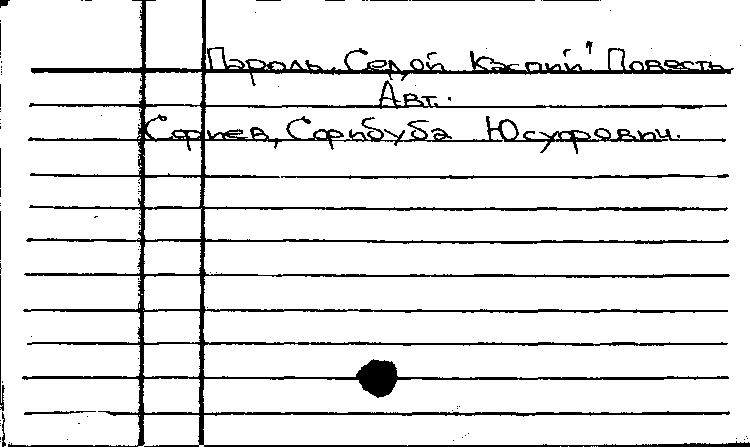 Пароль „Седой Каспий" Повесть
Авт.
Сафиев, Сафибуба Юсуфович.